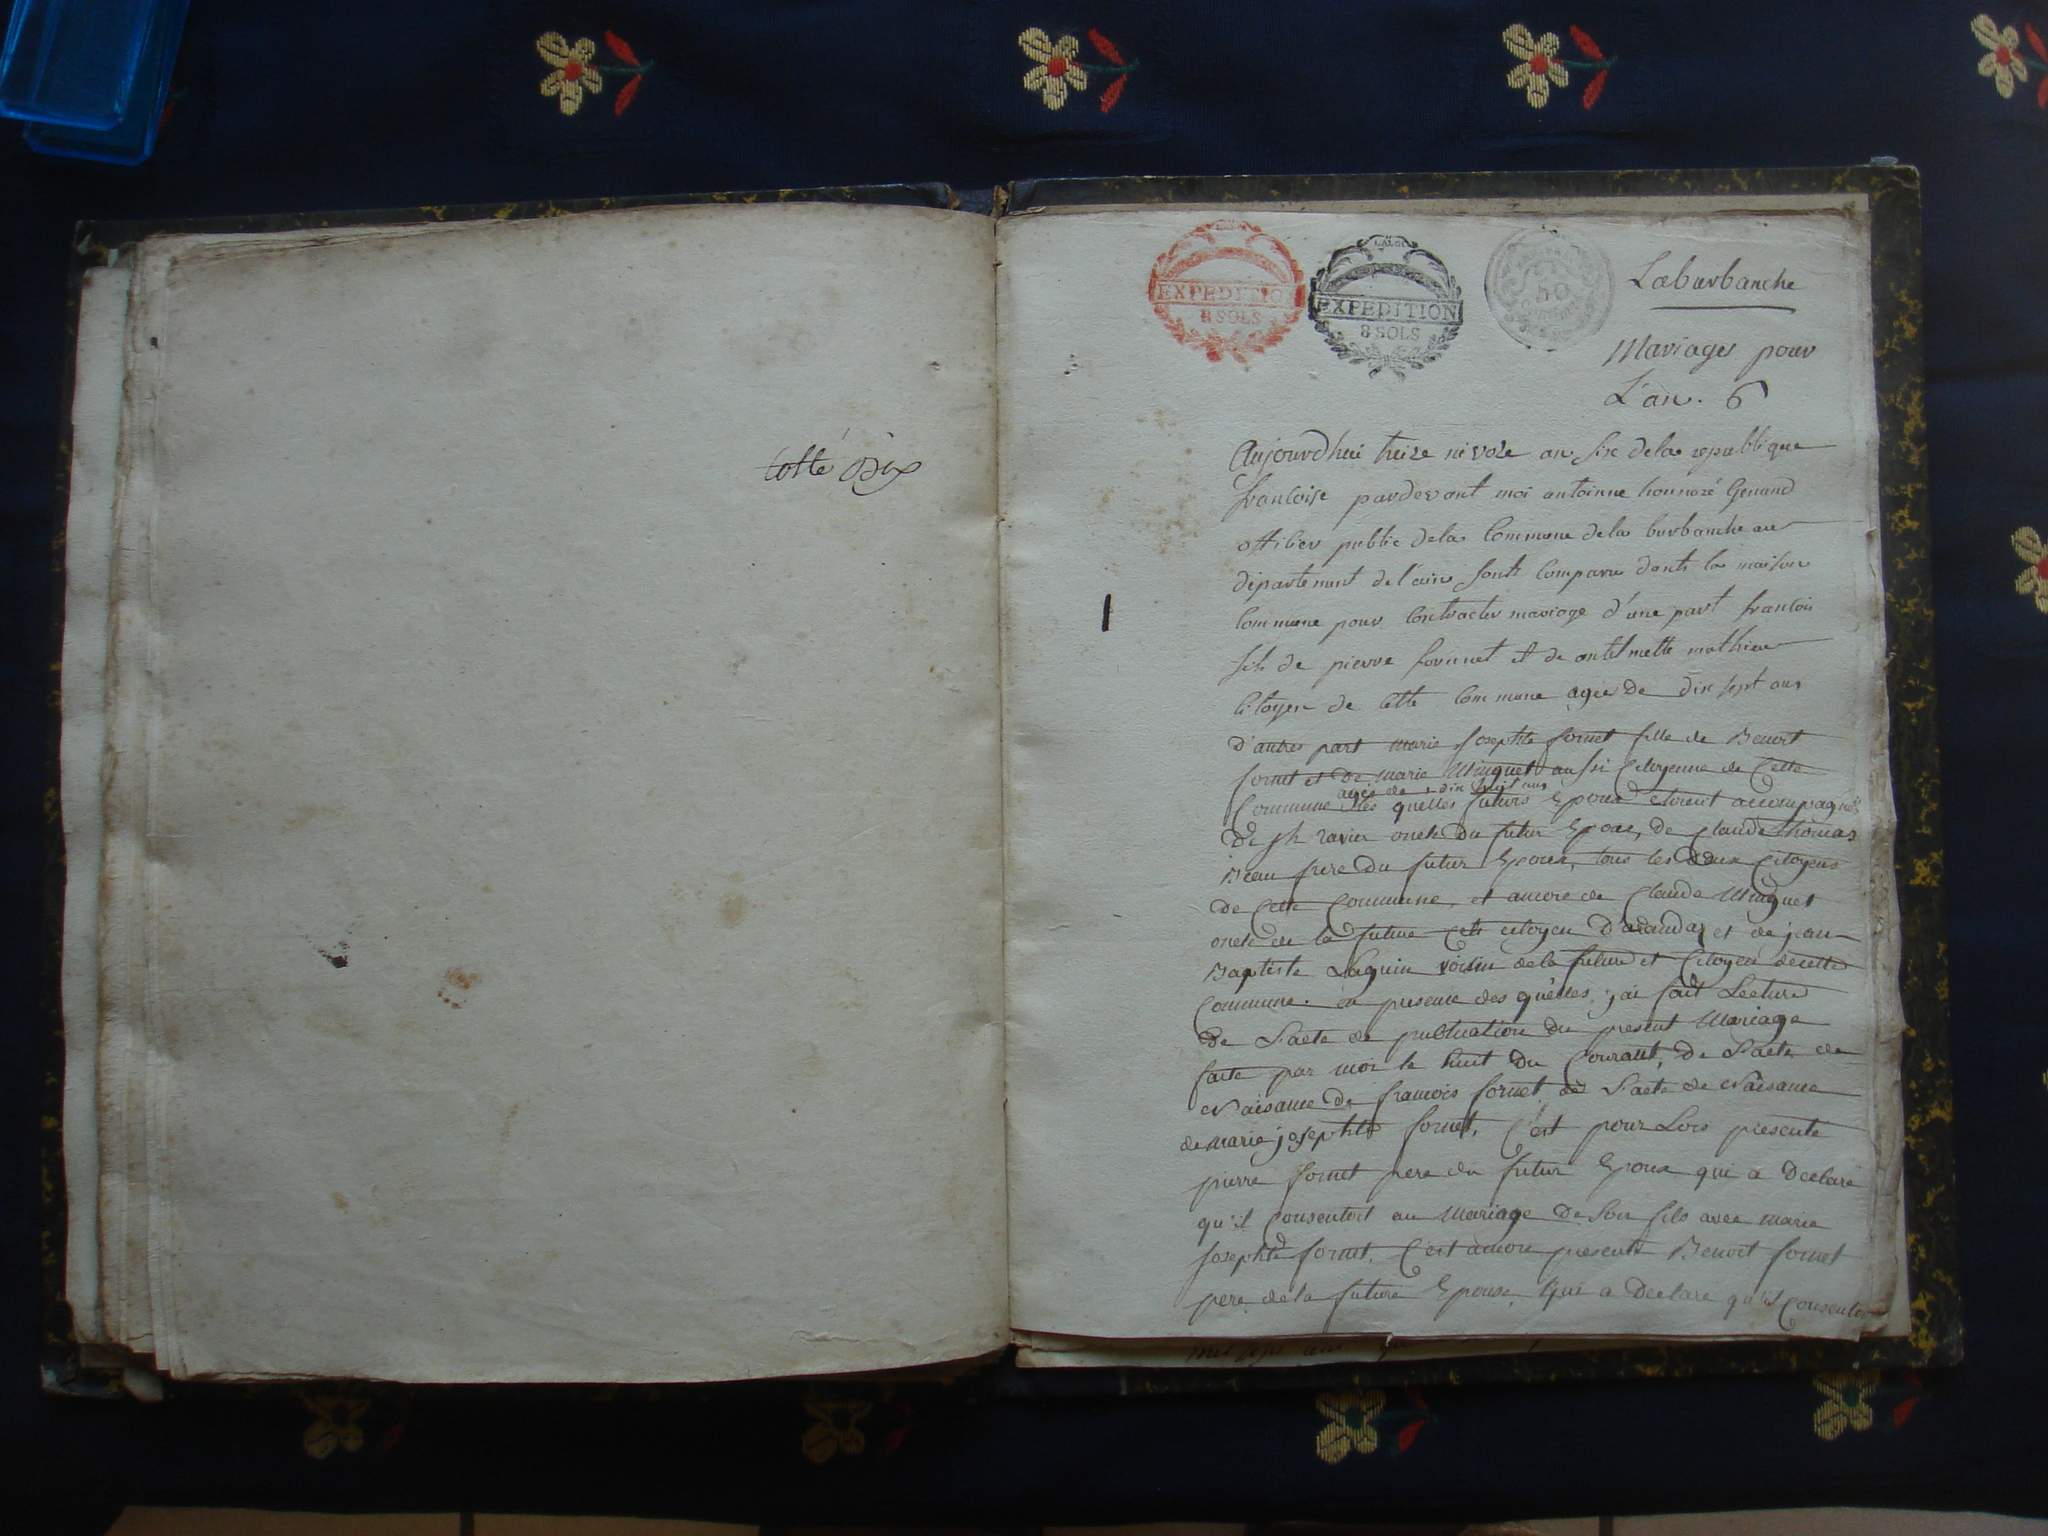 Cotté Dix
LA LOI
EXPEDITION
8 SOLS
EXPEDITION
8 SOLS
50
Laburbanche
Mariages pour
L'an. 6
Aujourdhui treize nivose an six dela republique
francoise pardevant moi antoinne honnoré Genand
officier public dela Commune dela burbanche au
département de l'ain sonts Comparu dants la maison
Commune pour Contracter mariage d'une part francois
fils de pierre fornnet et de antelmette mathieu
Citoyen de cette Commune agée De dix sept ans
d'autre part marie Josephte fornet fille de Benoit
fornet et De marie Minguet aussi Citoyenne de Cette
agée de dix huit ans
Commune les quelles futurs Epoux etoient accompagnés
De jh ravier oncle Du futur Epoux, de Claude thomas
Beau frere Du futur Epoux, tous les deux Citoyens
De Cette Commune, et ancore de Claude Minguet
oncle de la future citoyen D'arandas et de jean
Baptiste Laguin voisin dela future et Citoyen decette
Commune. en presence des quelles, j'ai fait Lecture
De L'acte de publication du present Mariage
faite par moi le huit Du Courant, de L'acte de
Naisance De francois fornet, de L'acte de Naisance
de marie josephte fornet, C'est pour Lors presenté
pierre fornet pere du futur Epoux qui a Declaré
qu'il Consentoit au Mariage De Son fils avec marie
Josephte fornet, C'est ancore presenté Benoit fornet
pere de la future Epouse, Qui a Declare qu'il Consentoit